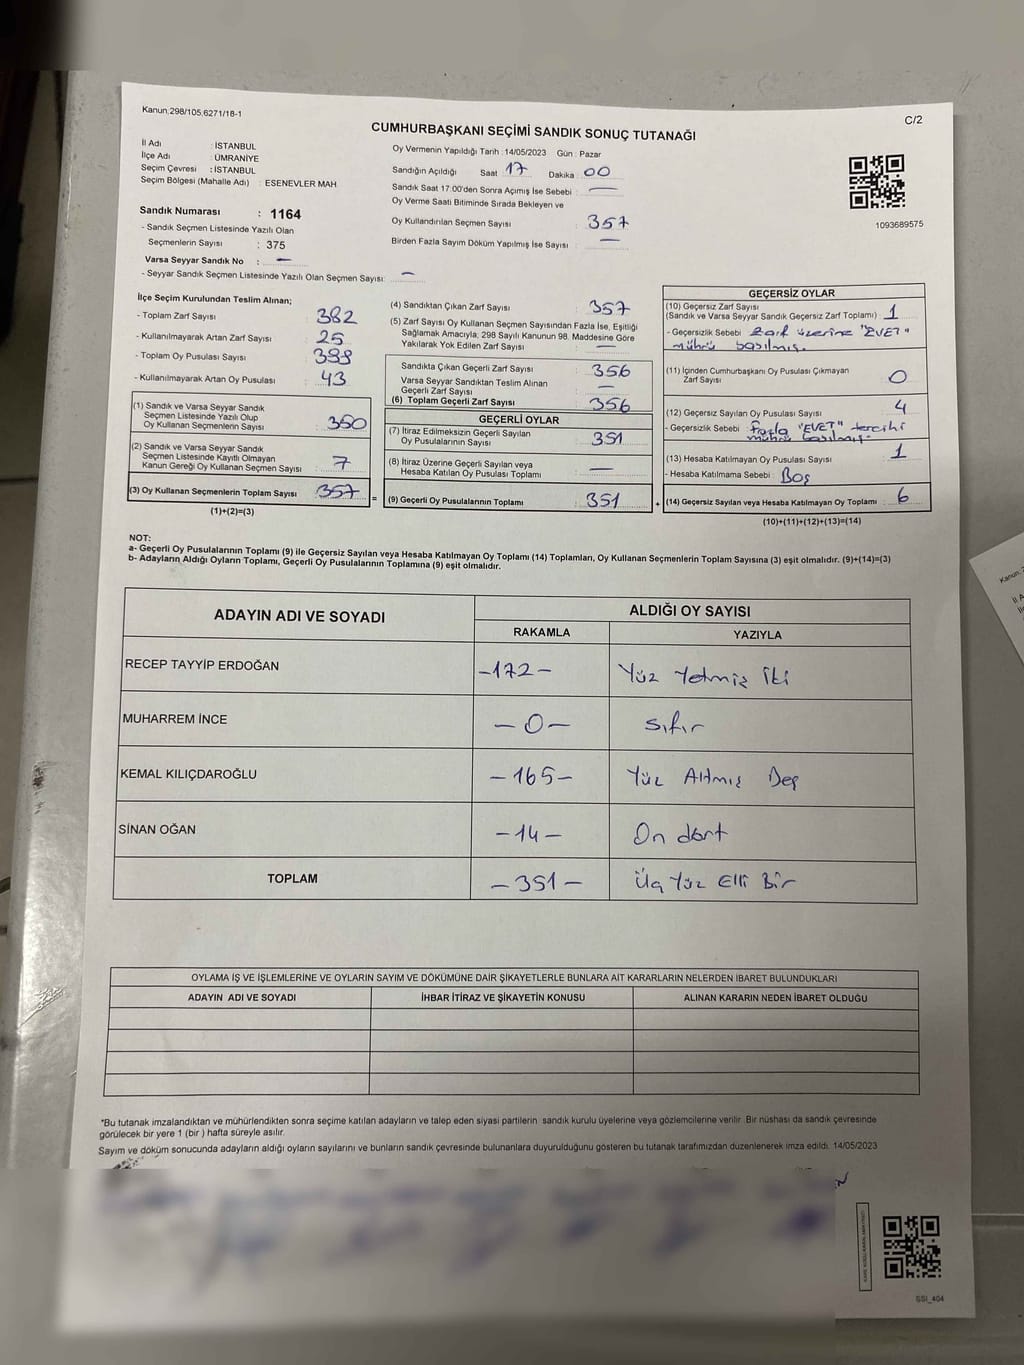 Kanun,298/105,6271/18-1
C/2
CUMHURBAŞKANI SEÇİMİ SANDIK SONUÇ TUTANAĞI
İl Adı : İSTANBUL
İlçe Adı : ÜMRANİYE
Seçim Çevresi : İSTANBUL
Seçim Bölgesi (Mahalle Adı) : ESENEVLER MAH
Sandık Numarası : 1164
- Sandık Seçmen Listesinde Yazılı Olan
Seçmenlerin Sayısı : 375
Varsa Seyyar Sandık No : —
- Seyyar Sandık Seçmen Listesinde Yazılı Olan Seçmen Sayısı: —
Oy Vermenin Yapıldığı Tarih : 14/05/2023 Gün : Pazar
Sandığın Açıldığı Saat 17 Dakika : 00
Sandık Saat 17:00'den Sonra Açımış İse Sebebi : —
Oy Verme Saati Bitiminde Sırada Bekleyen ve
Oy Kullandırılan Seçmen Sayısı : 357
Birden Fazla Sayım Döküm Yapılmış İse Sayısı : —
1093689575
İlçe Seçim Kurulundan Teslim Alınan;
- Toplam Zarf Sayısı : 382
- Kullanılmayarak Artan Zarf Sayısı : 25
- Toplam Oy Pusulası Sayısı : 399
- Kullanılmayarak Artan Oy Pusulası : 43
(1) Sandık ve Varsa Seyyar Sandık
Seçmen Listesinde Yazılı Olup
Oy Kullanan Seçmenlerin Sayısı : 350
(2) Sandık ve Varsa Seyyar Sandık
Seçmen Listesinde Kayıtlı Olmayan
Kanun Gereği Oy Kullanan Seçmen Sayısı : 7
(3) Oy Kullanan Seçmenlerin Toplam Sayısı : 357 =
(1)+(2)=(3)
(4) Sandıktan Çıkan Zarf Sayısı : 357
(5) Zarf Sayısı Oy Kullanan Seçmen Sayısından Fazla İse, Eşitliği
Sağlamak Amacıyla, 298 Sayılı Kanunun 98. Maddesine Göre
Yakılarak Yok Edilen Zarf Sayısı : —
Sandıkta Çıkan Geçerli Zarf Sayısı : 356
Varsa Seyyar Sandıktan Teslim Alınan
Geçerli Zarf Sayısı : —
(6) Toplam Geçerli Zarf Sayısı : 356
GEÇERLİ OYLAR
(7) İtiraz Edilmeksizin Geçerli Sayılan
Oy Pusulalarının Sayısı : 351
(8) İtiraz Üzerine Geçerli Sayılan veya
Hesaba Katılan Oy Pusulası Toplamı : —
(9) Geçerli Oy Pusulalarının Toplamı : 351 +
GEÇERSİZ OYLAR
(10) Geçersiz Zarf Sayısı
(Sandık ve Varsa Seyyar Sandık Geçersiz Zarf Toplamı) : 1
- Geçersizlik Sebebi : Zarf üzerine "EVET"
mührü basılmış.
(11) İçinden Cumhurbaşkanı Oy Pusulası Çıkmayan
Zarf Sayısı : 0
(12) Geçersiz Sayılan Oy Pusulası Sayısı : 4
- Geçersizlik Sebebi : fazla "EVET" tercihi
mührü basılmış.
(13) Hesaba Katılmayan Oy Pusulası Sayısı : 1
- Hesaba Katılmama Sebebi : Boş
(14) Geçersiz Sayılan veya Hesaba Katılmayan Oy Toplamı : 6
(10)+(11)+(12)+(13)=(14)
NOT:
a- Geçerli Oy Pusulalarının Toplamı (9) ile Geçersiz Sayılan veya Hesaba Katılmayan Oy Toplamı (14) Toplamları, Oy Kullanan Seçmenlerin Toplam Sayısına (3) eşit olmalıdır. (9)+(14)=(3)
b- Adayların Aldığı Oyların Toplamı, Geçerli Oy Pusulalarının Toplamına (9) eşit olmalıdır.
ADAYIN ADI VE SOYADI
ALDIĞI OY SAYISI
RAKAMLA YAZIYLA
RECEP TAYYİP ERDOĞAN -172- Yüz Yetmiş İki
MUHARREM İNCE -0- sıfır
KEMAL KILIÇDAROĞLU -165- Yüz Altmış Beş
SİNAN OĞAN -14- On dört
TOPLAM -351- Üç Yüz Elli Bir
OYLAMA İŞ VE İŞLEMLERİNE VE OYLARIN SAYIM VE DÖKÜMÜNE DAİR ŞİKAYETLERLE BUNLARA AİT KARARLARIN NELERDEN İBARET BULUNDUKLARI
ADAYIN ADI VE SOYADI İHBAR İTİRAZ VE ŞİKAYETİN KONUSU ALINAN KARARIN NEDEN İBARET OLDUĞU
*Bu tutanak imzalandıktan ve mühürlendikten sonra seçime katılan adayların ve talep eden siyasi partilerin sandık kurulu üyelerine veya gözlemcilerine verilir. Bir nüshası da sandık çevresinde
görülecek bir yere 1 (bir ) hafta süreyle asılır.
Sayım ve döküm sonucunda adayların aldığı oyların sayılarını ve bunların sandık çevresinde bulunanlara duyurulduğunu gösteren bu tutanak tarafımızdan düzenlenerek imza edildi. 14/05/2023
SSI_404
Kanun,